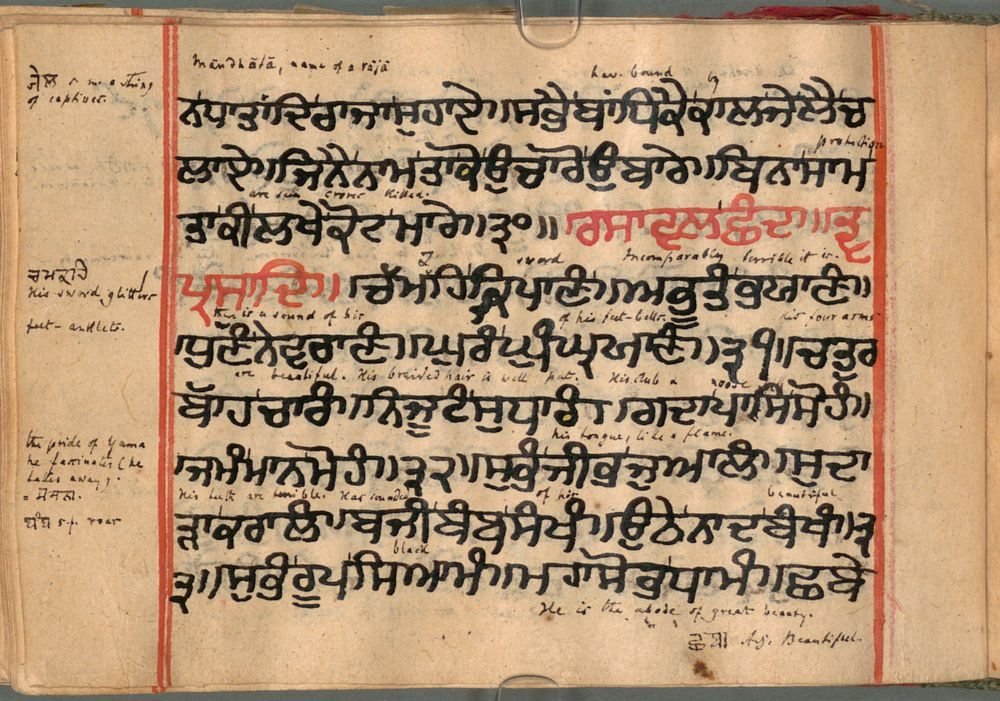 Māndhātā, name of a rājā
ਜੇਲ s. m. a string
of captives.
hav- bound by
ਨਧਾਤਾਂਦਿਰਾਜਾਸੁਹਾਏ॥ਸਭੈਬਾਂਧਿਕੈਕਾਲਜੇਲੈਚ
protection
ਲਾਏ॥ਜਿਨੈਨਾਮਤਾਕੋਉਚਾਰੋਉਬਾਰੇ॥ਬਿਨਾਸਾਮ
are seen crores killed.
ਤਾਕੀਲਖੇਕੋਟਮਾਰੇ॥੩੦॥ ਰਸਾਵਲਛੰਦ॥ਤ੍ਵ
sword Incomparably terrible it is.
ਪ੍ਰਸਾਦਿ॥ ਚੱਮਹਿਕ੍ਰਿਪਾਣੰ॥ਅਭੂਤੰਭਯਾਣੰ॥
ਚਮਕਹਿ
His sword glitters
feet-anklets.
there is a sound of his of his feet-bells. his four arms
ਧੁਣੰਨੇਵਰਾਣੰ॥ਘੁਰੰਘੁੰਘ੍ਰਯਾਣੰ॥੩੧॥ਚਤੁਰ
are beautiful. His braided hair is well put. His club & noose
ਬਾੱਹਚਾਰੰ॥ਨਿਜੂਟੰਸੁਧਾਰੰ॥ਗਦਾਪਾਸਿਸੋਹੰ॥
his tongue, like a flame.
the pride of Yama
he fascinates (he
takes away).
= ਮੋਸਨਾ.
ਜਮੰਮਾਨਮੋਹੰ॥੩੨॥ਸੁਭੰਜੀਭਜੁਆਲੰ॥ਸੁਦਾ
His teeth are terrible. Has sounded of his beautiful
ਬੰਬ s.f. roar
ੜਾਕਰਾਲੰ॥ਬਜੀਬੰਬਸੰਖੰ॥ਉਠੇਨਾਦਬੰਖੰ॥੩
black
੩॥ਸੁਭੰਰੂਪਸਿਆਮੰ॥ਮਹਾਸੋਭਧਾਮੰ॥ਛਬੇ
He is the abode of great beauty.
Adj. Beautiful.